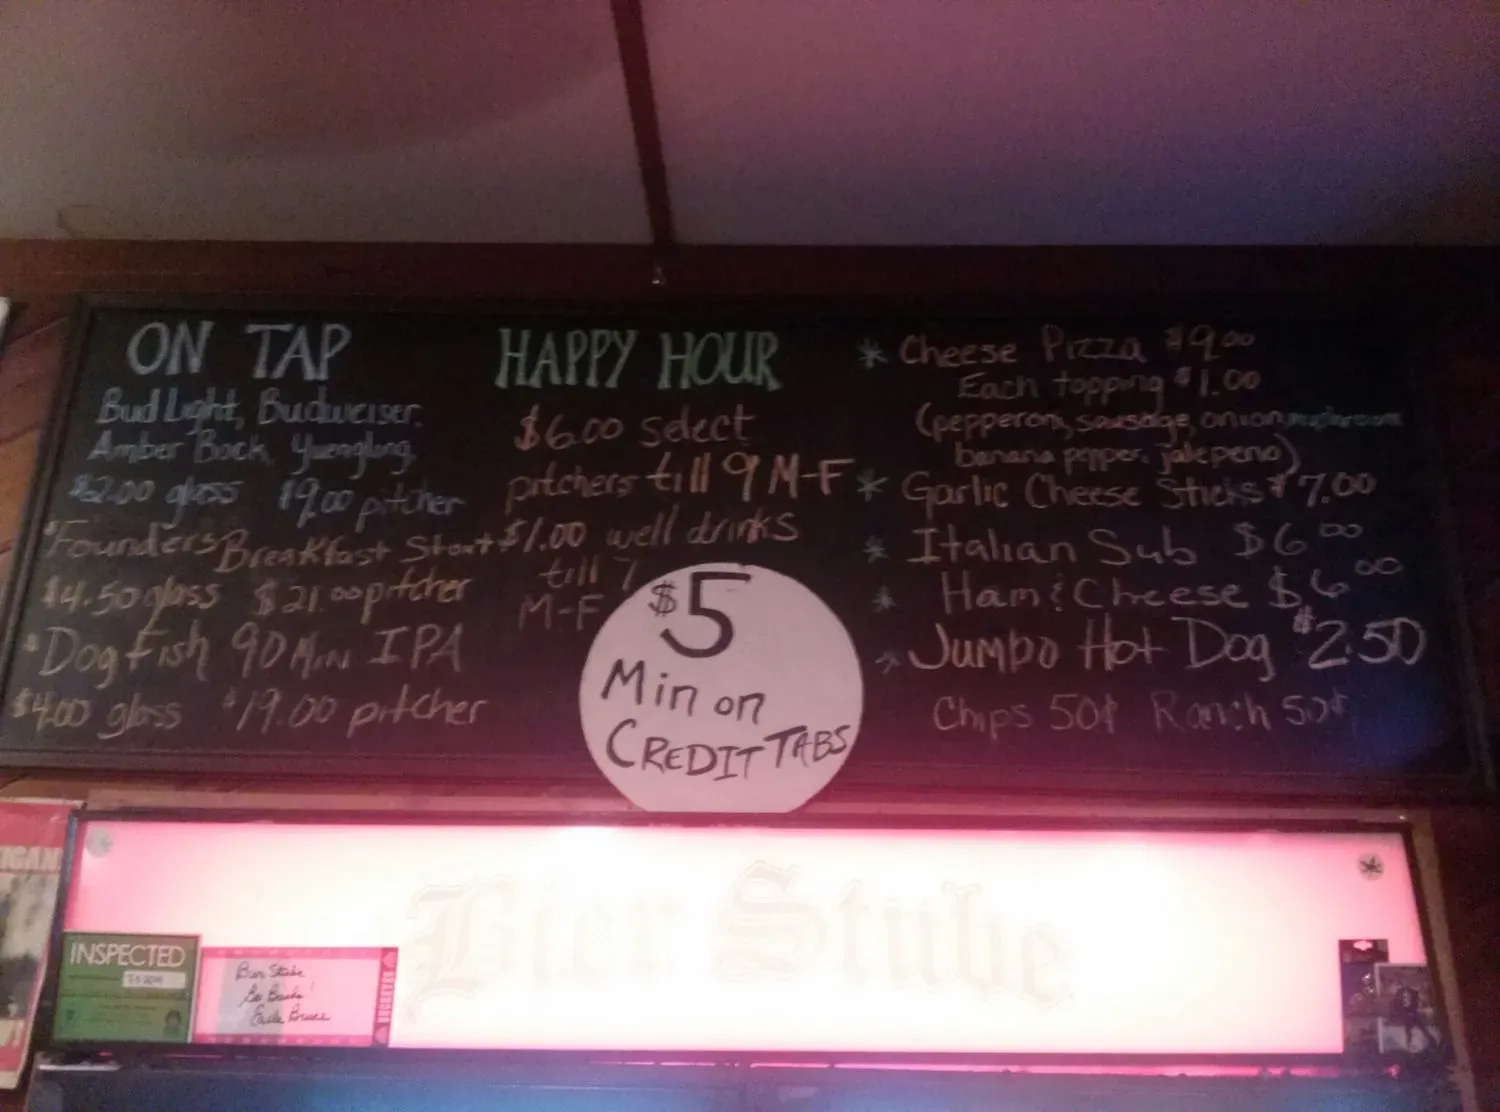 ON TAP
Bud Light, Budweiser,
Amber Bock, Yuengling,
$2.00 glass $9.00 pitcher
*Founders Breakfast Stout
$4.50 glass $21.00 pitcher
*Dog Fish 90 Min IPA
$4.00 glass $19.00 pitcher
HAPPY HOUR
$6.00 select
pitchers till 9 M-F
$1.00 well drinks
till 7
M-F
$5
Min on
CREDIT TABS
* Cheese Pizza $9.00
Each topping $1.00
(pepperoni, sausage, onion, mushroom
banana pepper, jalepeno)
* Garlic Cheese Sticks $7.00
* Italian Sub $6.00
* Ham & Cheese $6.00
* Jumbo Hot Dog $2.50
Chips 50¢ Ranch 50¢
Bier Stube
INSPECTED
Bier Stube
Go Bucks!
Earle Bruce
IGAN